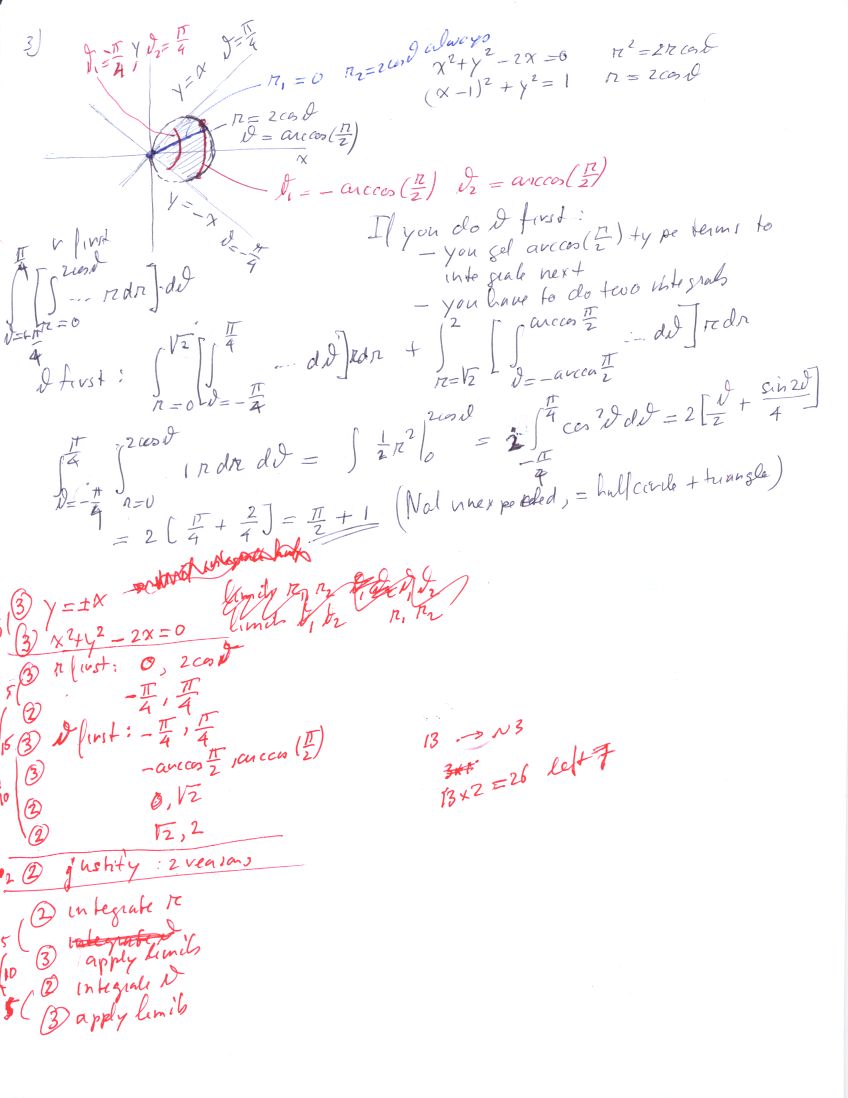 3)
ϑ₁=-π/4, ϑ₂=π/4
y
ϑ=π/4
y=x
r₁=0 r₂=2cosϑ always
x²+y²-2x=0 r²=2rcosϑ
(x-1)²+y²=1 r=2cosϑ
r=2cosϑ
ϑ=arccos(r/2)
x
ϑ₁=-arccos(r/2) ϑ₂=arccos(r/2)
y=-x
ϑ=-π/4
If you do ϑ first:
- you get arccos(r/2) type terms to
integrate next
- you have to do two integrals
r first
∫_{ϑ=-π/4}^{π/4} [∫_{r=0}^{2cosϑ} ... r dr] dϑ
ϑ first: ∫_{r=0}^{√2} [∫_{ϑ=-π/4}^{π/4} ... dϑ] r dr + ∫_{r=√2}^{2} [∫_{ϑ=-arccos r/2}^{arccos r/2} ... dϑ] r dr
∫_{ϑ=-π/4}^{π/4} ∫_{r=0}^{2cosϑ} 1 r dr dϑ = ∫ ½r² |_0^{2cosϑ} = 2 ∫_{-π/4}^{π/4} cos²ϑ dϑ = 2[ϑ/2 + sin2ϑ/4]
= 2[π/4 + 2/4] = π/2 + 1 (Not unexpected, = half circle + triangle)
③ y=±x
③ x²+y²-2x=0
limits r₁ r₂ ϑ₁ ϑ₂
limits ϑ₁ ϑ₂ r₁, r₂
③ r first: 0, 2cosϑ
5
② -π/4, π/4
15 ③ ϑ first: -π/4, π/4
③ -arccos r/2, arccos(r/2)
10
② 0, √2
② √2, 2
② justify: 2 reasons
② integrate r
5 integrate ϑ
③ apply limits
10 ② integrate ϑ
5 ③ apply limits
13 → N3
13×2=26 left 7